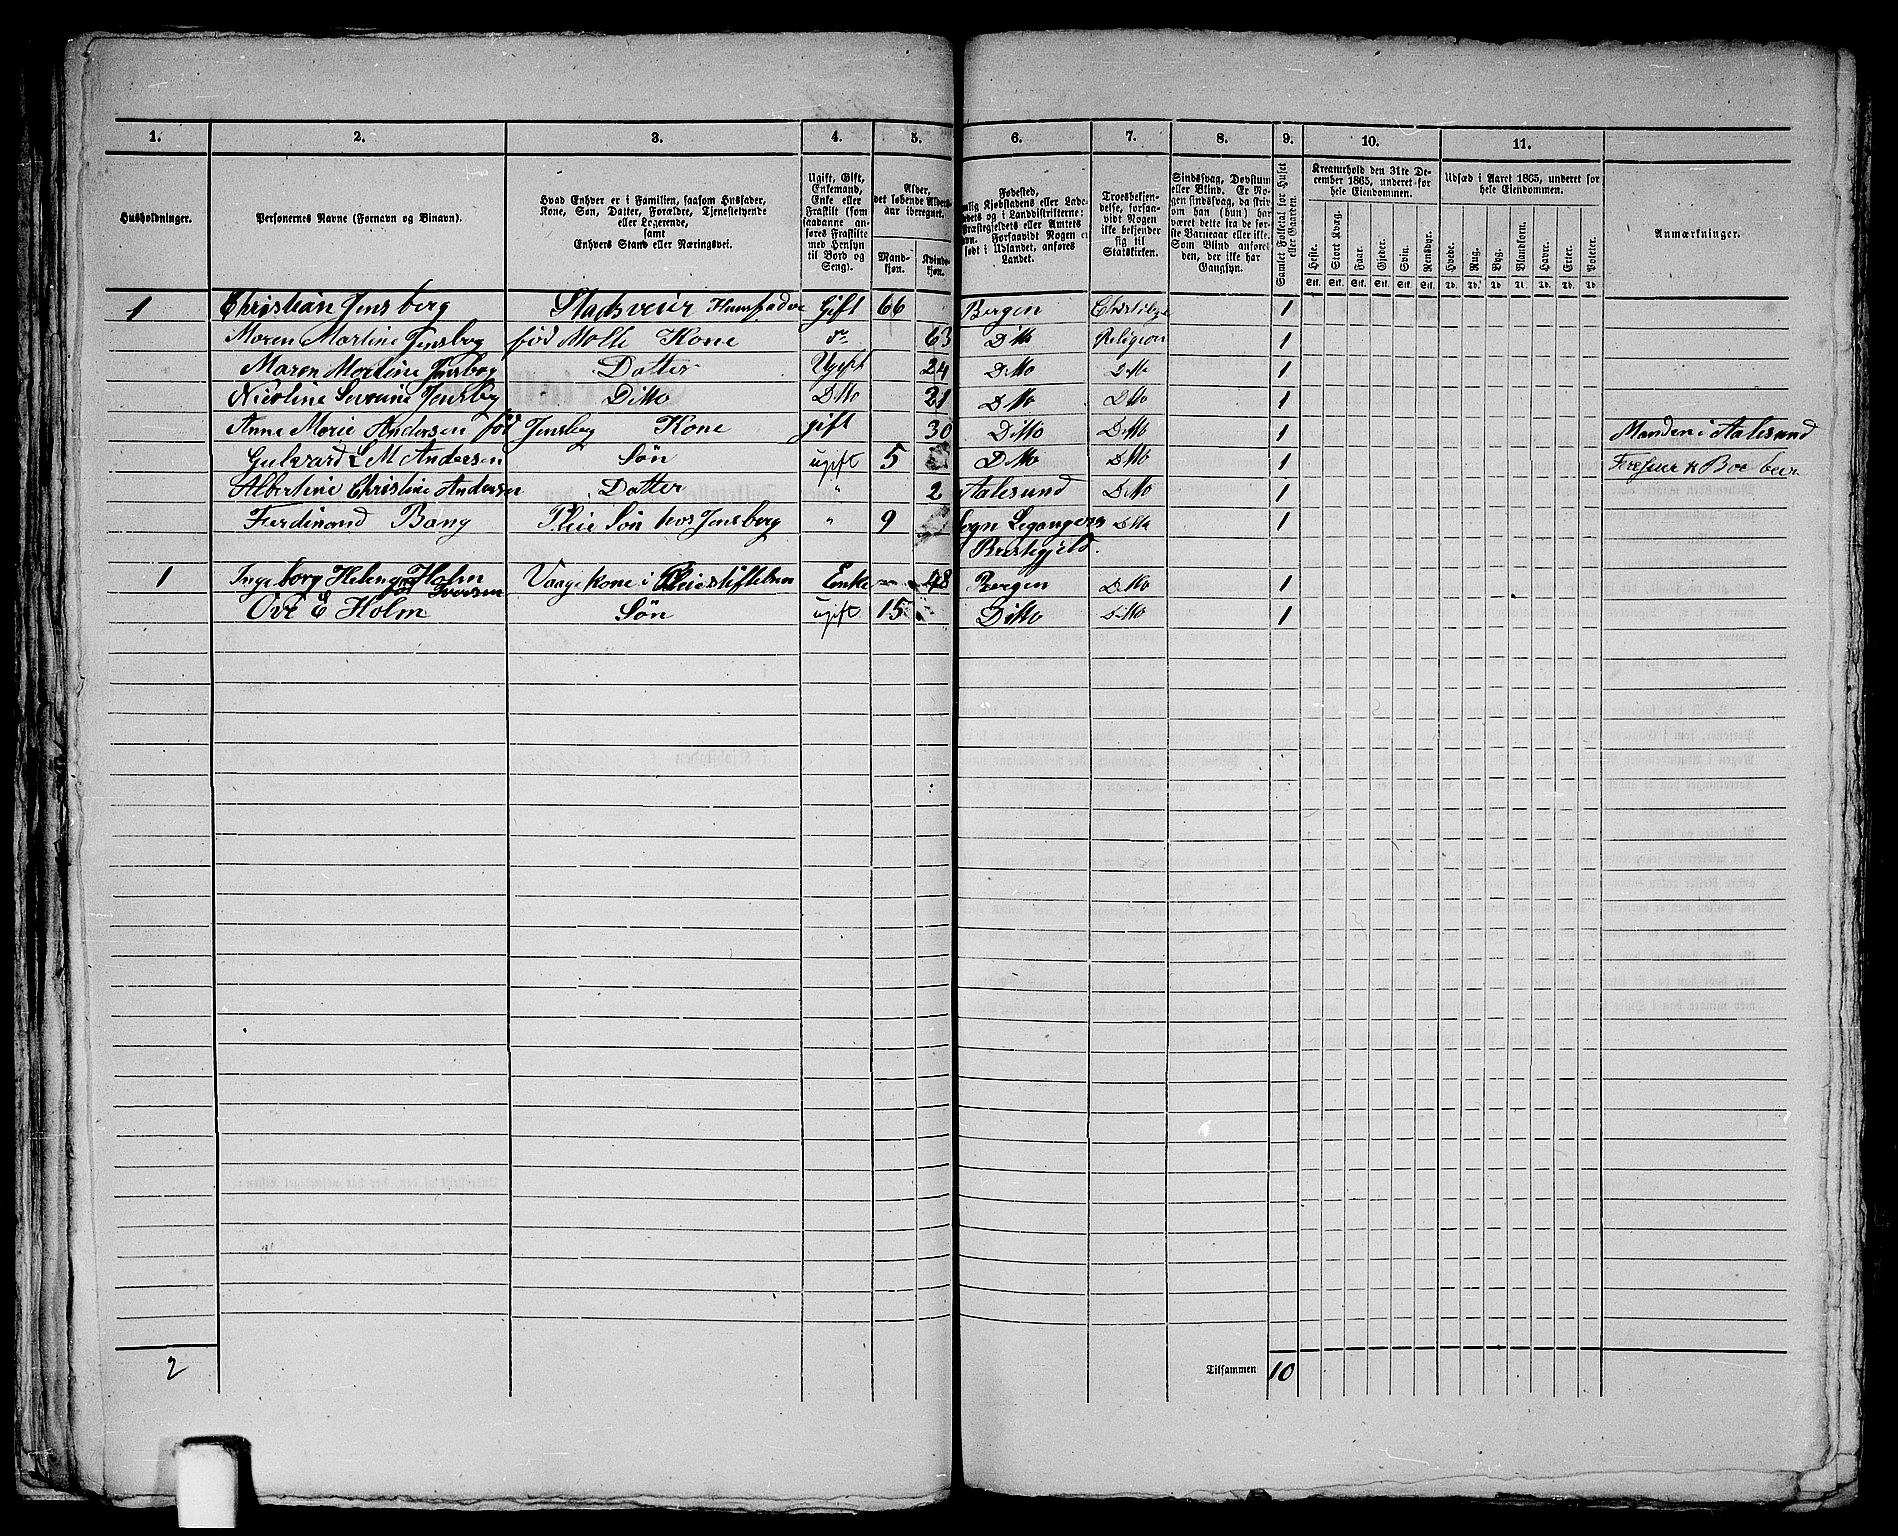 1. 2. 3. 4. 5. 6. 7. 8. 9. 10. 11.
Husholdninger.
Personernes Navne (Fornavn og Binavn).
Hvad Enhver er i Familien, saasom Husfader,
Kone, Søn, Datter, Forældre, Tjenestetyende
eller Logerende,
samt
Enhvers Stand eller Næringsvei.
Ugift, Gift,
Enkemand,
Enke eller
Fraskilt (som
saadanne an-
føres Fraskilte
med Hensyn
til Bord og
Seng).
Alder,
det løbende Alders-
aar iberegnet.
Mand-
kjøn.
Kvinde-
kjøn.
Fødested,
Landet.
Troesbekjen-
delse, forsaa-
vidt Nogen
ikke bekjender
sig til
Statskirken.
Sindssvag, Døvstum
eller Blind. Er No-
gen sindssvag, da skriv
om han (hun) har
været dette fra de før-
ste Barneaar eller ikke.
Som Blind anføres
den, der ikke har
Gangsyn.
Samlet Folketal for Huset
eller Gaarden.
Kreaturhold den 31te De-
cember 1865, underet for
hele Eiendommen.
Heste. Stort Kvæg. Faar. Gjeder. Svin. Rensdyr.
Stk. Stk. Stk. Stk. Stk. Stk.
Udsæd i Aaret 1865, underet for
hele Eiendommen.
Hvede. Rug. Byg. Blandkorn. Havre. Erter. Poteter.
Anmærkninger.
1 Christian Jensberg Stadsveier Gift 66 Bergen 1
Maren Martine Jensberg født Kone do 63 Ditto Religion 1
Maren Martine Jensberg Datter Ugift 24 Ditto Ditto 1
Nicoline Severine Jensberg Ditto Ditto 21 Ditto Ditto 1
Anne Marie Andersen fød Jensberg Kone gift 30 Ditto Ditto 1 Manden i Aalesund
L M Andersen Søn ugift 5 Ditto Ditto 1
Albertine Christine Andersen Datter " 2 Aalesund Ditto 1
Ferdinand Bang Pleie Søn hos Jensberg " 9 Sogn Leganger Ditto 1
Prestegjeld.
1 Ingeborg Helene Holm Vaagekone i Pleiestiftelsen Enke 48 Bergen Ditto 1
Ove E Holm Søn ugift 15 Ditto Ditto 1
2 Tilsammen 10